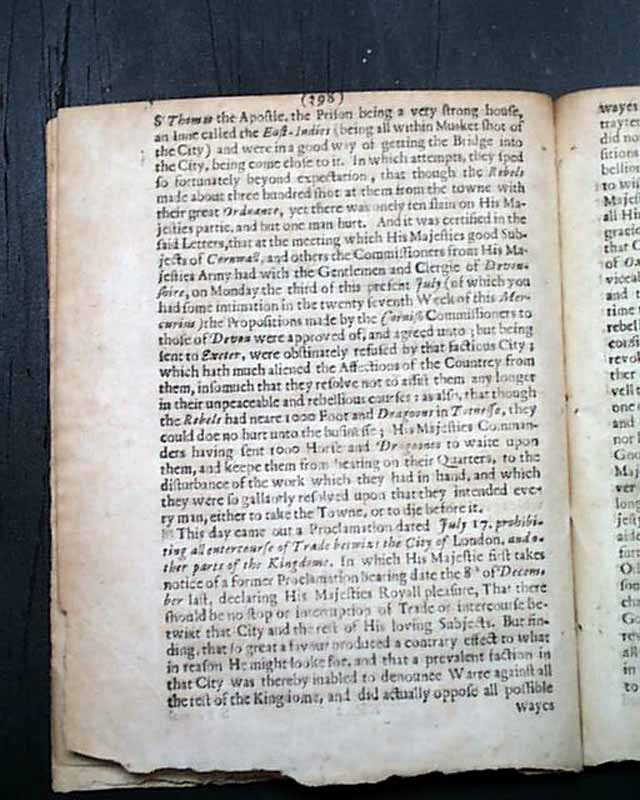 (398)
St Thomas the Apostle, the Prison being a very strong house,
an Inne called the East-Indies (being all within Musket shot of
the City) and were in a good way of getting the Bridge into
the City, being come close to it. In which attempts, they sped
so fortunately beyond expectation, that though the Rebels
made about three hundred shot at them from the towne with
their great Ordnance, yet there was onely ten slain on His Ma-
jesties partie, and but one man hurt. And it was certified in the
said Letters, that at the meeting which His Majesties good Sub-
jects of Cornwall, and others the Commissioners from His Ma-
jesties Army had with the Gentlemen and Clergie of Devon-
shire, on Monday the third of this present July (of which you
had some intimation in the twenty seventh Week of this Mer-
curius) the Propositions made by the Cornish Commissioners to
those of Devon were approved of, and agreed unto; but being
sent to Exeter, were obstinately refused by that factious City;
which hath much aliened the Affections of the Countrey from
them, insomuch that they resolve not to assist them any longer
in their unpeaceable and rebellious courses: as also, that though
the Rebels had neare 1000 Foot and Dragoons in Totnesse, they
could doe no hurt unto the businesse; His Majesties Comman-
ders having sent 1000 Horse and Dragoones to waite upon
them, and keepe them from beating on their Quarters, to the
disturbance of the work which they had in hand, and which
they were so gallantly resolved upon that they intended eve-
ry man, either to take the Towne, or to die before it.
This day came out a Proclamation dated July 17. prohibi-
ting all entercourse of Trade betwixt the City of London, and o-
ther parts of the Kingdome. In which His Majestie first takes
notice of a former Proclamation bearing date the 8th of Decem-
ber last, declaring His Majesties Royall pleasure, That there
should be no stop or interruption of Trade or intercourse be-
twixt that City and the rest of His loving Subjects. But fin-
ding, that so great a favour produced a contrary effect to what
in reason He might looke for, and that a prevalent faction in
that City was thereby inabled to denounce Warre against all
the rest of the Kingdome, and did actually oppose all possible
wayes
wayes
trayter
did no
sitions
bellion
to wit
Majest
all His
graci
that C
of
viceal
and t
time
rebell
consi
revol
ther
vell
one
and
not
Goo
Maj
ver
long
jest
aide